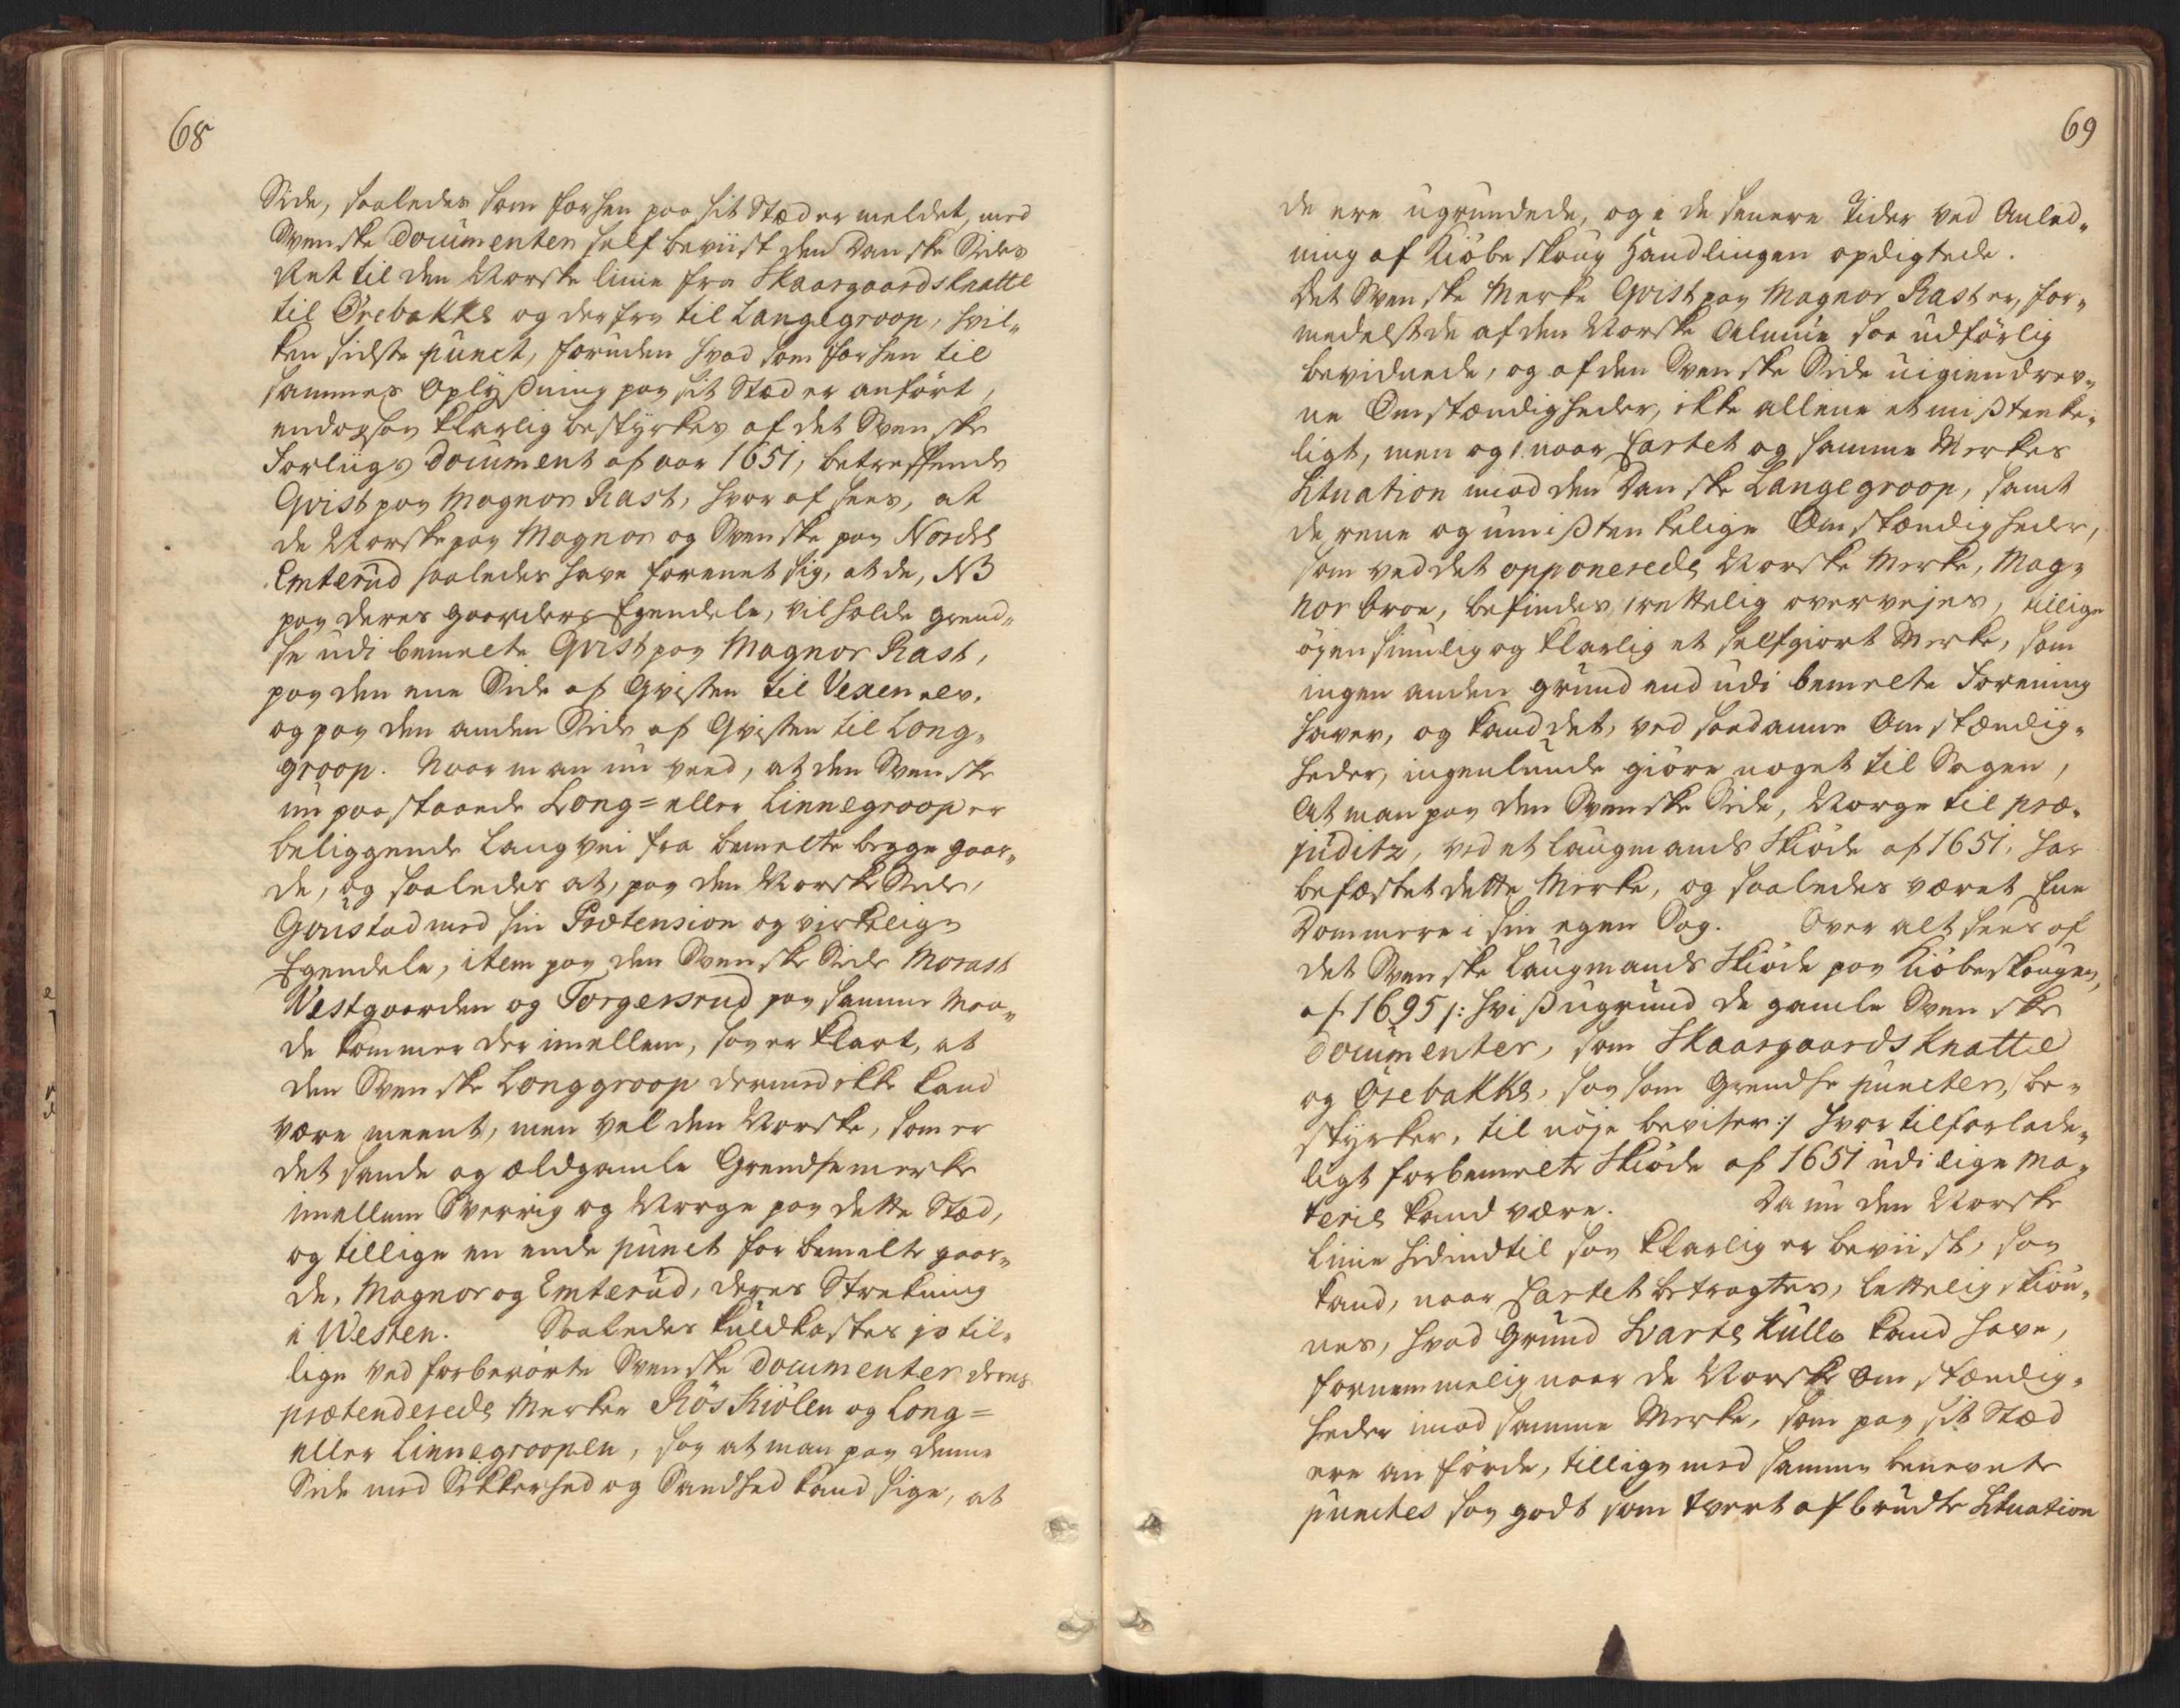 68
Side, saaledes som forhen paa sit Stæd er meldet, med
Svenske Documenter self beviist den Danske Sides
Ret til den Norske linie fra Skaargaards Knatte
til Örebakke og derfra til Langegroop, hvil„
ken sidste punct, foruden hvad som forhen til
sammes Oplyßning paa sit Stæd er anfört,
endogsaa klarlig bestyrkes af det Svenske
Forliigs Document af aar 1651, betreffende
Qvist paa Magnor Rast, hvor af sees, at
de Norske paa Magnor og Svenske paa Nordre
Emterud saaledes have forenet sig, at de, NB
paa deres gaarders Egendele, vil holde grend„
se udi bemelte Qvist paa Magnor Rast,
paa den ene Side af Qvisten til Vexen elv.
og paa den anden Side af Qvisten til Long„
groop. Naar man nu veed, at den Svenske
nu paastaaende Long= eller Linnegroop er
beliggende langvei fra bemelte begge gaar„
de, og saaledes at, paa den Norske Side,
Gaustad med sin Prætension og virkelige
Egendele, item paa den Svenske Side Morast
Vestgaarden og Torgersrud paa samme Maa„
de kommer der imellem, saa er klart, at
den Svenske Longgroop dermed ikke kand
være meent, men vel den Norske, som er
det sande og ældgamle Grendsemerke
imellem Sverrig og Norge paa dette Stæd,
og tillige en ende punct for bemelte gaar„
de, Magnor og Emterud, deres Strekning
i Westen. Saaledes kuldkastes jo til„
lige ved forberörte Svenske Documenter deres
prætenderede Merker Rös Kiölen og Long=
eller Linnegroopen, saa at man paa denne
Side med Sikkerhed og Sandhed kand sige, at
69
de ere ugrundede, og i de senere Tider ved Anled„
ning af Kiöbe skoug Handlingen opdigtede.
Det Svenske Merke Qvist paa Magnor Rast er, for„
medelst de af den Norske Almue saa udförlig
bevidnede, og af den Svenske Side uigiendrev„
ne Omstændigheder, ikke allene et mißtenke„
ligt, men og, naar Cartet og samme Merkes
Situation mod den Danske Langegroop, samt
de rene og umißtenkelige Omstændigheder,
som ved det opponerede Norske Merke, Mag„
nor broe, befindes, rettelig overvejes, tillige
öjensiunlig og klarlig et selfgiort Merke, som
ingen anden grund end udi bemelte Forening
haver, og kand det, ved saadanne Omstændig„
heder, ingenlunde giöre noget til Sagen,
At man paa den Svenske Side, Norge til præ„
juditz, ved et Laugmands Skiöde af 1651, har
befæstet dette Merke, og saaledes været Een
Dommere i sin egen Sag. Over alt sees af
det Svenske Laugmands Skiöde paa Kiöbeskougen,
af 1695 /: hviß ugrund de gamle Svenske
Documenter, som Skaargaards Knatte
og Örebakke, saa som Grendse puncter, be„
styrker, til nöje beviser :/ hvor tilforlade„
ligt forbemelte Skiöde af 1651 udi lige Ma„
terie kand være. Da nu den Norske
Linie hidindtil saa klarlig er beviist, saa
kand, naar Cartet betragtes, lettelig skiön„
nes, hvad Grund Svarte Kulla kand have,
fornemmelig naar de Norske Omstændig„
heder imod samme Merke, som paa sit Stæd
ere anförde, tillige med samme benevnte
punctes saa godt som tvert afbrudte Situation